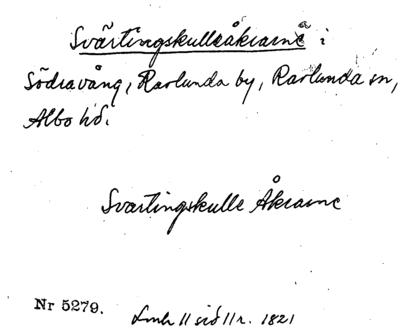 Svärtingskulleåkrarna i
Södravång, Ravlunda by, Ravlunda sn,
Albo hd.
Svartingskulle Åkrarne
Nr 5279. Lmk 11 sid 11 r. 1821